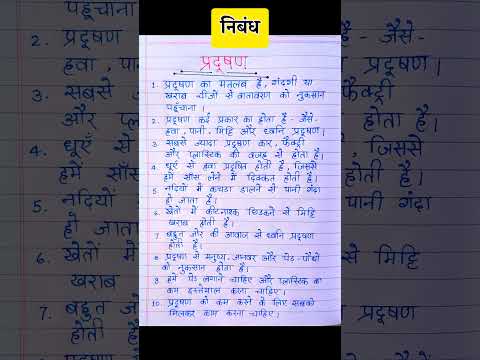 निबंध
प्रदूषण
1. प्रदूषण का मतलब है, गंदगी या
खराब चीजों से वातावरण को नुकसान
पहूंचाना।
2. प्रदूषण कई प्रकार का होता है - जैसे-
हवा, पानी, मिट्टि और ध्वनि प्रदूषण।
3. सबसे ज्यादा प्रदूषण कार, फैक्ट्री
और प्लास्टिक की वजह से होता है।
4. धूएँ से हवा प्रदूषित होती है, जिससे
हमें साँस लेने में दिक्कत होती है।
5. नदियों में कचडा डालने से पानी गंदा
हो जाता है।
6. खेतों में कीटनाशक छिडकने से मिट्टि
खराब होती है।
7. बहूत जोर की आवाज से ध्वनि प्रदूषण
होती है।
8. प्रदूषण से मनुष्य, जानवर और पेड-पौधो
को नुकसान होता है।
9. हमे पेड लगाने चाहिए और प्लास्टिक का
कम इस्तेमाल करना चाहिए।
10. प्रदूषण को कम करने के लिए सबको
मिलकर काम करना चाहिए।
पहूंचाना
2. प्रदूषण
हवा, पानी
3. सबसे
और प्ला
4. धूएँ से
हमें साँ
5. नदियों
हो जाता
6. खेतों मे
खराब
7. बहूत
होती है
है - जैसे-
प्रदूषण।
फैक्ट्री
है।
जिससे
है।
गंदा
मिट्टि
प्रदूषण